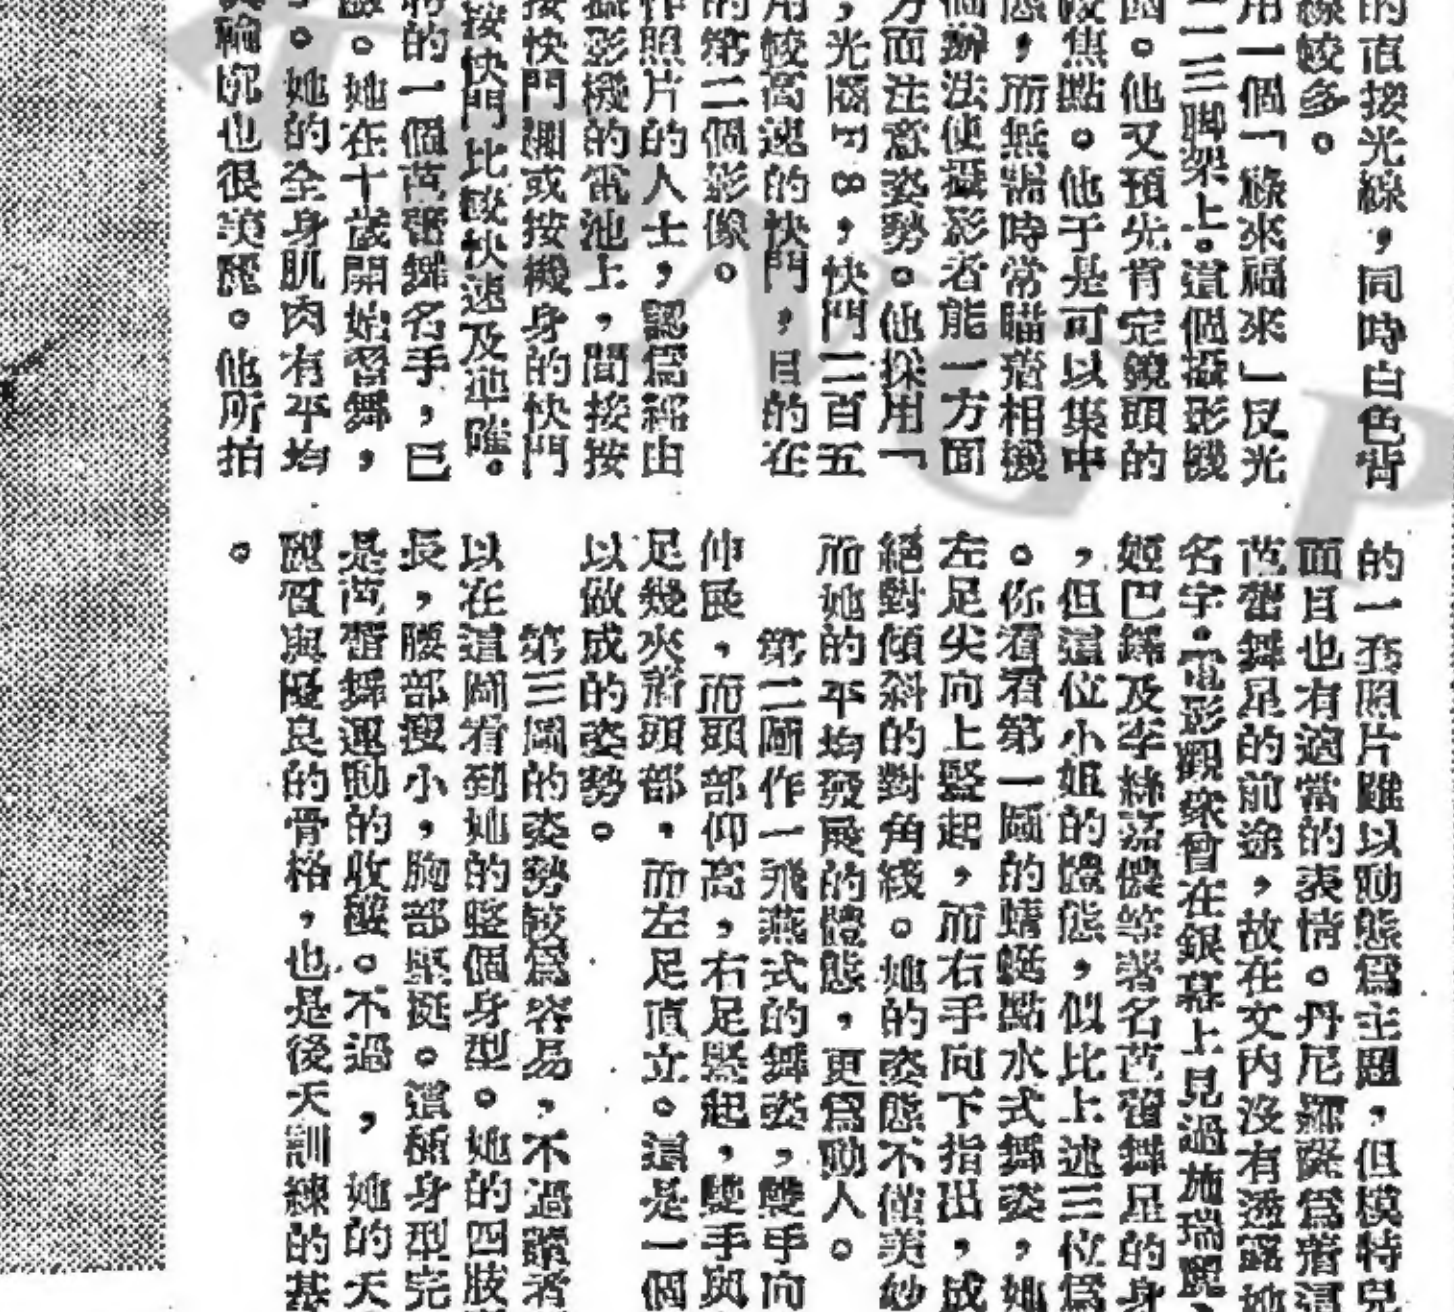 的直接光線，同時白色背
線較多。
用一個「綠來福來」反光
二三脚架上。這個攝影機
四。他又預先肯定鏡頭的
較焦點。他于是可以集中
態，而無需時常瞄着相機
個辦法使攝影者能一方面
方面注意姿勢。他採用「
，光圈F8，快門二百五
用較高速的快門，目的在
的第二個影像。
作照片的人士，認爲經由
攝影機的電池上，間接按
按快門掣或按機身的快門
按快門比較快速及準確。
的一個芭蕾舞名手，已
。她在十歲開始習舞，
。她的全身肌肉有平均
輪廓也很美麗。他所拍
的一套照片雖以動態爲主題，但模特兒
面目也有適當的表情。丹尼羅薩爲着這
芭蕾舞星的前途，故在文內沒有透露她
名字。電影觀衆曾在銀幕上見過施瑞麗、
姬巴錫及李絲嘉儂等著名芭蕾舞星的身
，但這位小姐的體態，似比上述三位爲
。你看看第一圖的蜻蜓點水式舞姿，她
左足尖向上豎起，而右手向下指出，成
絕對傾斜的對角綫。她的姿態不僅美妙
而她的平均發展的體態，更爲動人。
第二圖作一飛燕式的舞姿，雙手向
伸展，而頭部仰高，右足豎起，雙手與
足幾夾着頭部，而左足直立。這是一個
以做成的姿勢。
第三圖的姿勢較爲容易，不過讀者
以在這圖看到她的整個身型。她的四肢
長，腰部瘦小，胸部堅挺。這種身型完
是芭蕾舞運動的收穫。不過，她的天
體質與優良的骨格，也是後天訓練的基
。